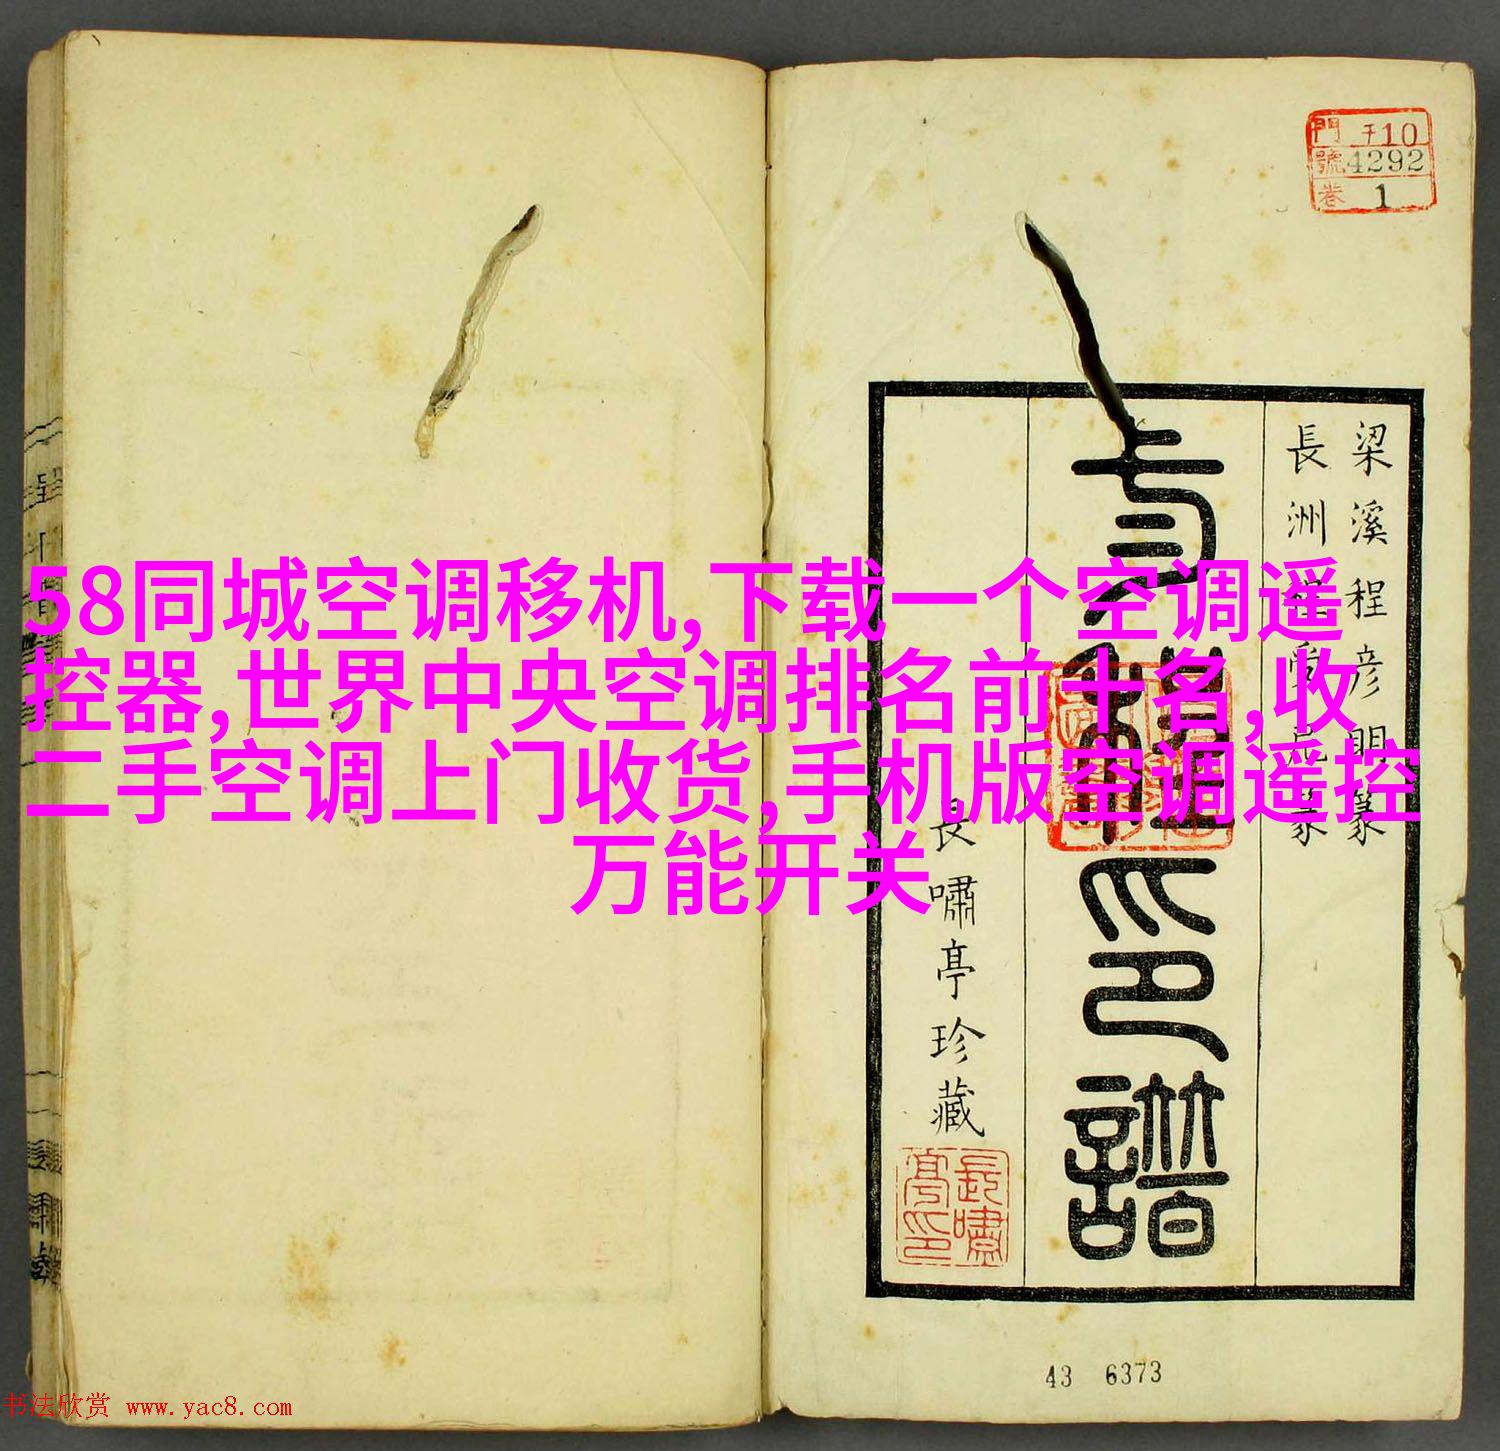 門 于10
號 4292
卷 1
58同城空调移机,下载一个空调遥
控器,世界中央空调排名前十名,收
二手空调上门收货,手机版空调遥控
万能开关
梁溪程彦明篆
長洲程
篆
印譜
長嘯亭珍藏
長嘯亭印
43 6373
书法欣赏 www.yac8.com